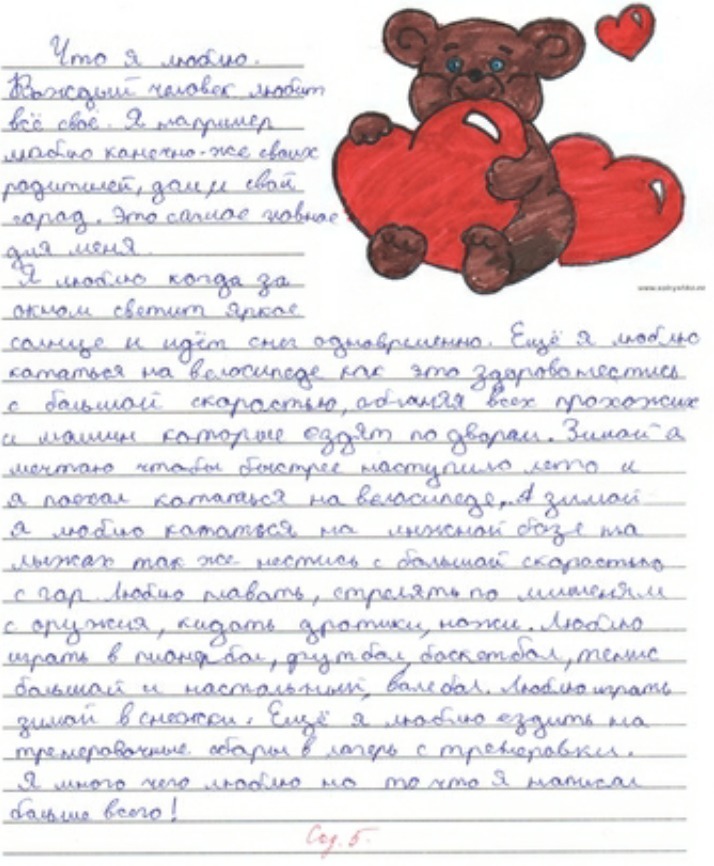 Что я люблю.
Каждый человек любит
всё своё. Я например
люблю канечно-же своих
родителей, дом и свой
горад. Это самое главное
для меня.
Я люблю когда за
окном светит яркое
www.xxlnyshko.ee
солнце и идёт снег одновременно. Ещё я люблю
кататься на велосипеде как это здорово нестись
с большой скарастью, обганяя всех прохожих
и машин которые ездят по дворам. Зимой я
мечтаю чтобы быстрее наступило лето и
я поехал кататься на велосипеде. А зимой
я люблю кататься на лыжной базе на
лыжах так же нестись с большой скарастью
с гор. Люблю плавать, стрелять по мишеням
с оружия, кидать дротики, ножи. Люблю
играть в пианербол, футбол, баскетбол, тенис
большой и настольный, валебол. Люблю играть
зимой в снежки. Ещё я люблю ездить на
тренеровочные сборы в лагерь с тренеровки.
Я много чего люблю но то что я написал
больше всего!
Сод. 5.